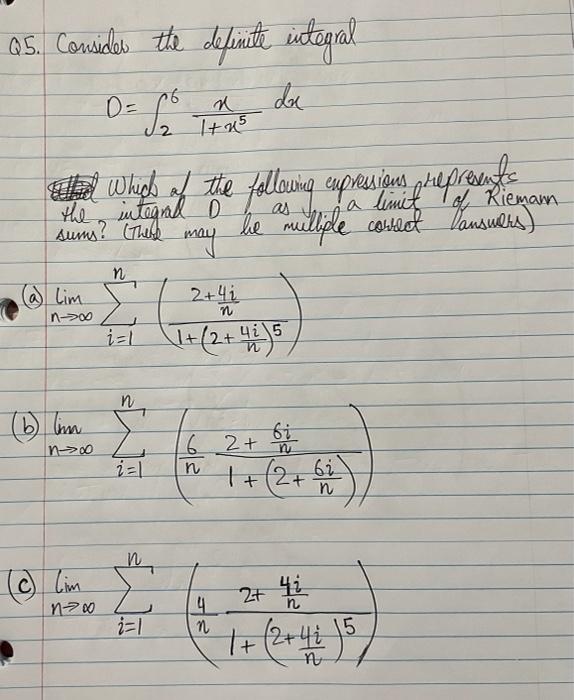 Q5. Consider the definite integral
D = ∫₂⁶ x/(1+x⁵) dx
Which of the following expressions represents
the integral D as a limit of Riemann
sums? (There may be multiple correct answers)
(a) lim n→∞ Σ i=1 n ( (2+4i/n) / (1+(2+4i/n)⁵) )
(b) lim n→∞ Σ i=1 n ( 6/n (2+6i/n) / (1+(2+6i/n)) )
(c) lim n→∞ Σ i=1 n ( 4/n (2+4i/n) / (1+(2+4i/n)⁵) )